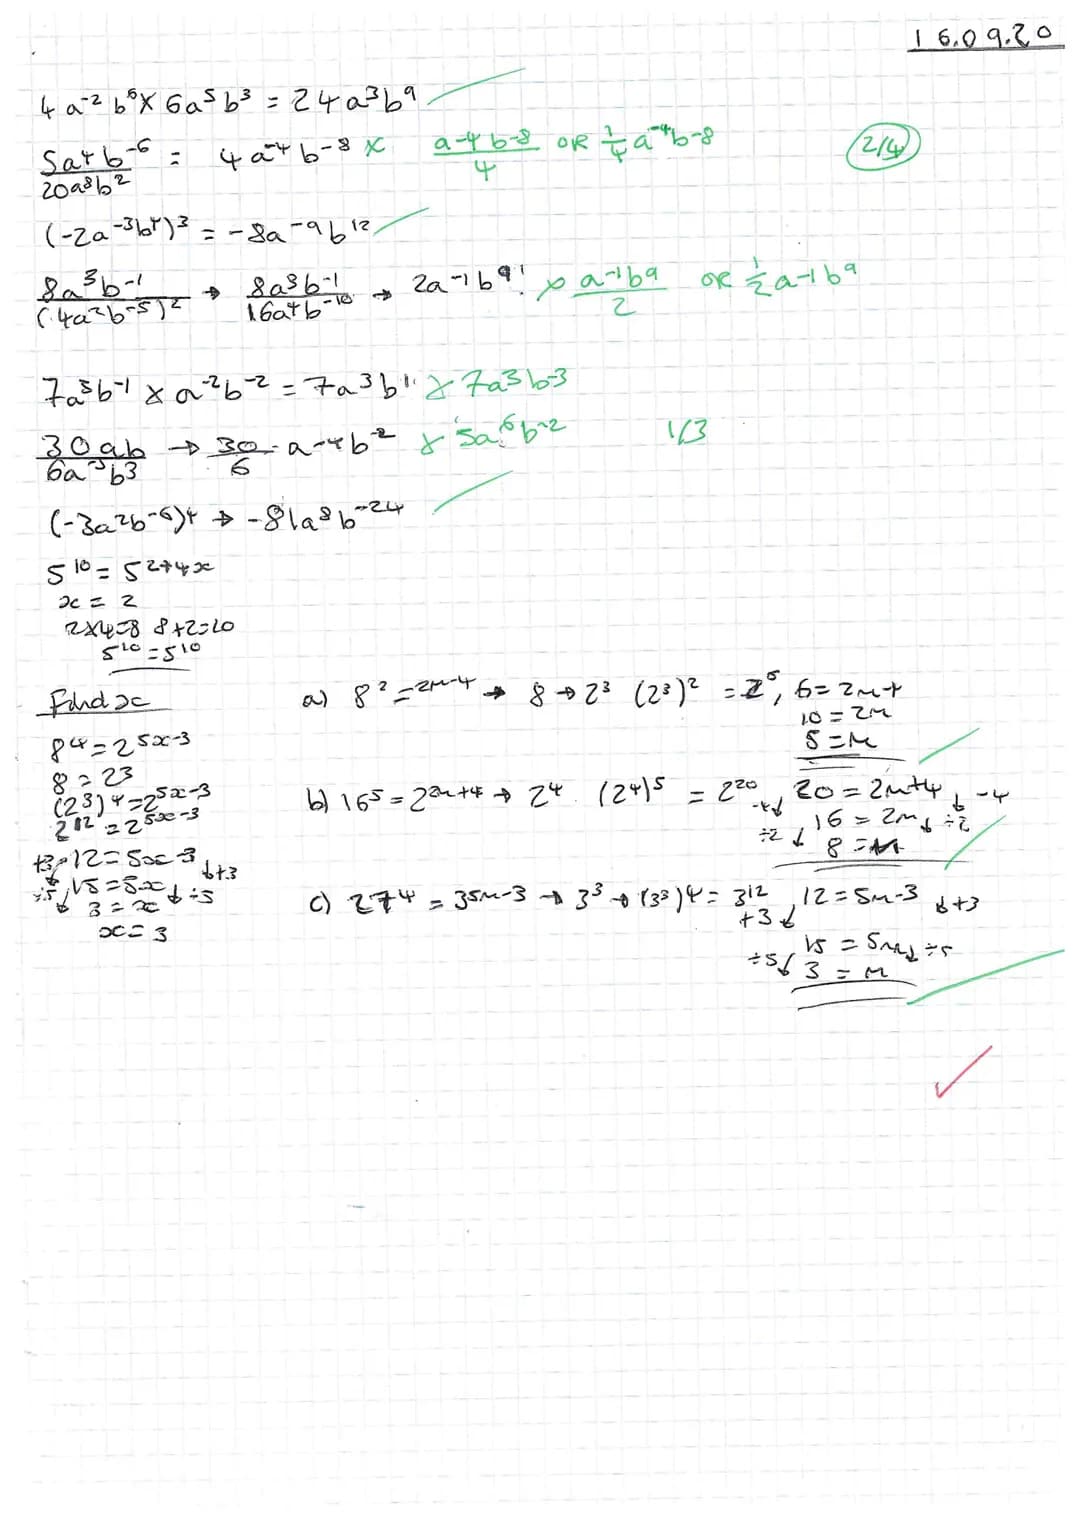 16.09.20
4a⁻²b⁶ × 6a⁵b³ = 24a³b⁹ ✓
5a⁴b⁻⁶/20a⁸b² = 4a⁻⁴b⁻⁸ × a-4b-8/4 OR 1/4 a⁻⁴b-8 2/4
(-2a⁻³b⁴)³ = -8a⁻⁹b¹² ✓
8a³b⁻¹/(4a²b⁻⁵)² → 8a³b⁻¹/16a⁴b⁻¹⁰ → 2a⁻¹b⁹ × a⁻¹b⁹/2 OR 1/2 a⁻¹b⁹
7a⁵b⁻¹ × a⁻²b⁻² = 7a³b¹ × 7a³b-3
30ab/6a⁻⁵b³ → 30/6 a⁻⁴b⁻² × 5a⁶b⁻² 1/3
(-3a²b⁻⁶)⁴ → -81a⁸b⁻²⁴ ✓
5¹⁰ = 5²⁺⁴ˣ
x = 2
2×4=8 8+2=10
5¹⁰ = 5¹⁰
Find x
8⁴ = 2⁵ˣ⁻³
8 = 2³
(2³)⁴ = 2⁵ˣ⁻³
2¹² = 2⁵ˣ⁻³
+3 12 = 5x-3 ↓+3
÷5 ↓ 15 = 5x ↓ ÷5
3 = x
x = 3
a) 8² = 2ᴹ⁻⁴ → 8 → 2³ (2³)² = 2⁶, 6 = 2M-4
10 = 2M
5 = M ✓
b) 16⁵ = 2²ᴹ⁺⁴ → 2⁴ (2⁴)⁵ = 2²⁰, 20 = 2M+4 ↓ -4
-4↓ 16 = 2M ↓ ÷2
÷2 ↓ 8 = M ✓
c) 27⁴ = 3⁵ᴹ⁻³ → 3³ → (3³)⁴ = 3¹², 12 = 5M-3 ↓+3
+3↓ 15 = 5M ↓ ÷5
÷5↓ 3 = M ✓
✓